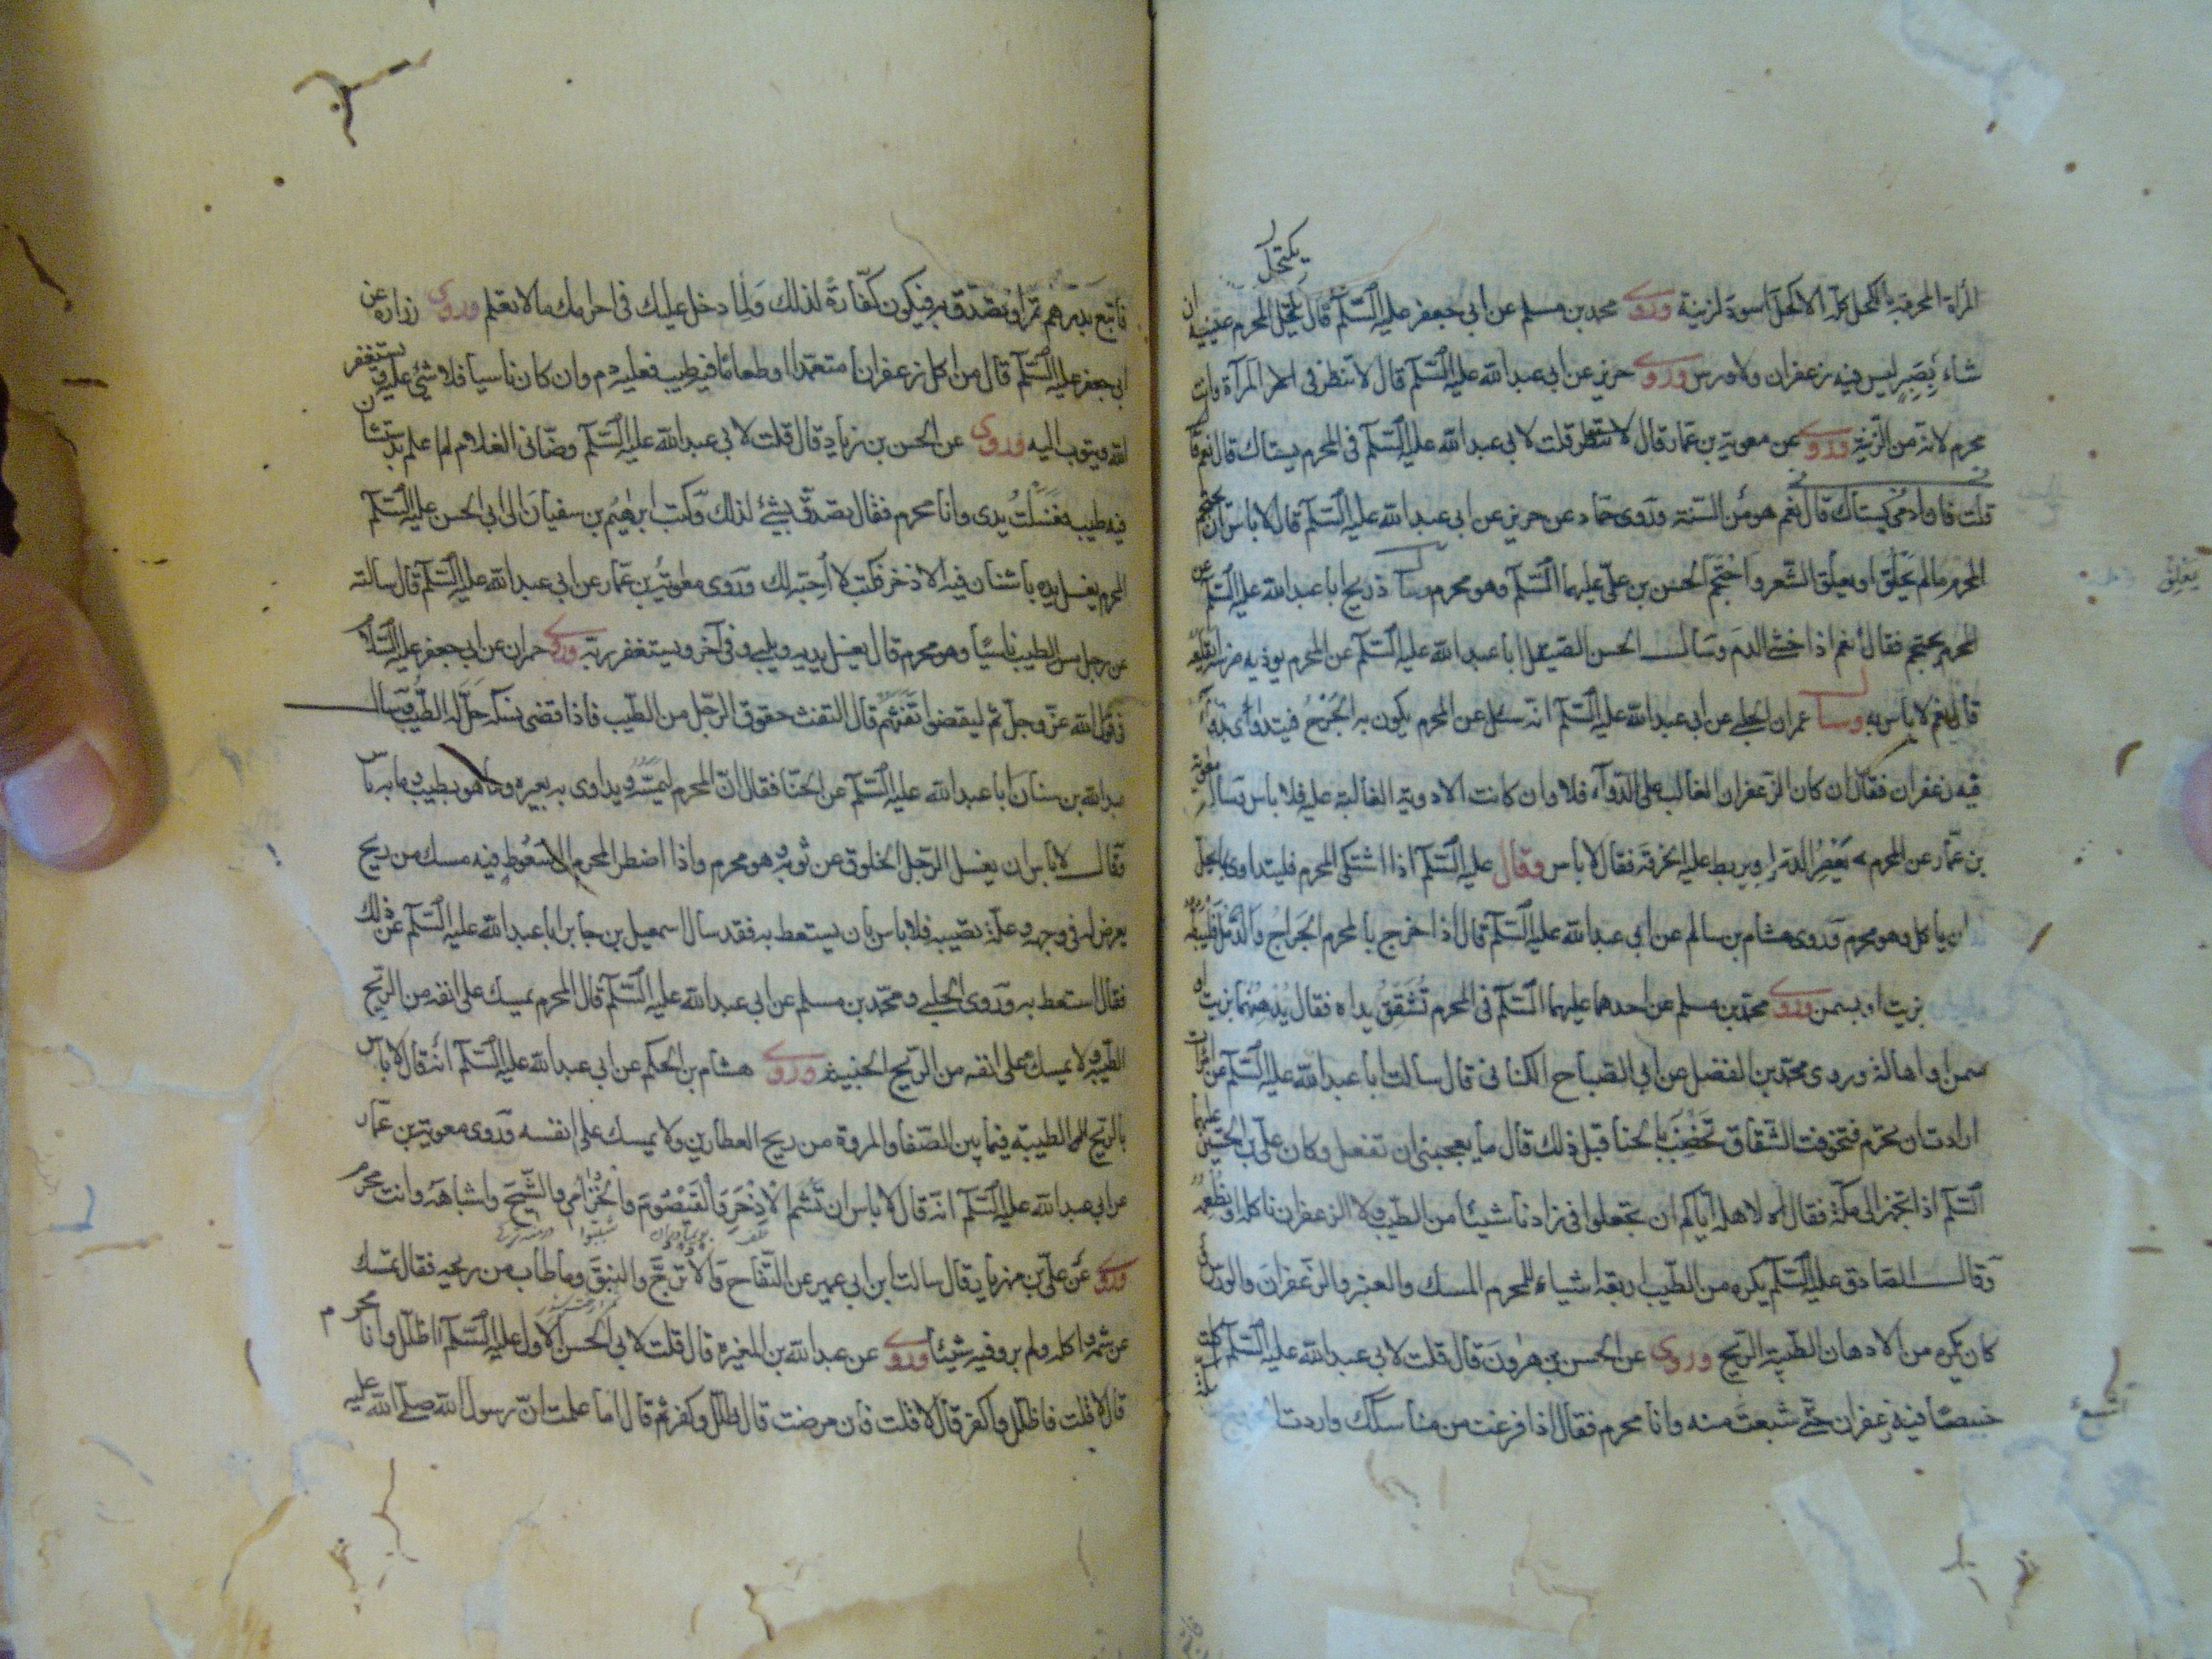 يكتحل
المرأة المحرمة بالكحل كله الا كحل اسود لزينة وروى محمد بن مسلم عن ابي جعفر عليه السلم قال يكتحل المحرم عينيه ان
شاء بصبر ليس فيه زعفران ولا ورس وروى حريز عن ابي عبد الله عليه السلم قال لا تنظر في المرآة وانت
محرم لانه من الزينة وروى عن معوية بن عمار قال قلت لابي عبد الله عليه السلم في المحرم يستاك قال نعم
قلت فان ادمى يستاك قال نعم هو من السنة وروى حماد عن حريز عن ابي عبد الله عليه السلم قال لا باس ان يحتجم
المحرم ما لم يحلق او يعلق الشعر واحتجم الحسن بن علي عليهما السلم وهو محرم وسأل ذريح ابا عبد الله عليه السلم عن
المحرم يحتجم فقال نعم اذا خشي الدم وسأل الحسن الصيقل ابا عبد الله عليه السلم عن المحرم يوذيه ضرسه ايقلعه
قال نعم لا باس به وسأل عمران الحلبي عن ابي عبد الله عليه السلم انه سئل عن المحرم يكون به الجرح فيتداوى بدواء
فيه زعفران فقال ان كان الزعفران الغالب على الدواء فلا وان كانت الادوية الغالبة عليه فلا باس وسأله معوية
بن عمار عن المحرم يعصر الدمل ويربط عليه الخرقة فقال لا باس وقال عليه السلم اذا اشتكى المحرم فليتداو بما يحل
ان ياكل وهو محرم وروى هشام بن سالم عن ابي عبد الله عليه السلم قال اذا خرج بالمحرم الجراح والدمل فليبطه
بزيت او بسمن وروى محمد بن مسلم عن احدهما عليهما السلم في المحرم تشقق يداه فقال يدهنهما بزيت او
سمن او اهالة وروى محمد بن الفضل عن ابي الصباح الكناني قال سالت ابا عبد الله عليه السلم عن امرأة
ارادت ان تحرم فتخوفت الشقاق تخضب بالحنا قبل ذلك قال ما يعجبني ان تفعل وكان علي بن الحسين عليهما
السلم اذا تجهز الى مكة فقال لاهله اياكم ان تجعلوا في زادنا شيئا من الطيب ولا الزعفران ناكله او نطعمه
وقال الصادق عليه السلم يكره من الطيب اربعة اشياء للمحرم المسك والعنبر والزعفران والورس
كان يكره من الادهان الطيبة الريح وروى عن الحسن بن هرون قال قلت لابي عبد الله عليه السلم اكلت
خبيصا فيه زعفران حتى شبعت منه وانا محرم فقال اذا فرغت من مناسكك واردت الخروج
يعلق
اشبع
فابتع بدرهم تمرا وتصدق به فيكون كفارة لذلك ولما دخل عليك في احرامك مما لا تعلم وروى زرارة عن
ابي جعفر عليه السلم قال من اكل زعفرانا متعمدا او طعاما فيه طيب فعليه دم وان كان ناسيا فلا شيء عليه ويستغفر
الله ويتوب اليه وروى عن الحسن بن زياد قال قلت لابي عبد الله عليه السلم وضأني الغلام ولم اعلم بدستشان
فيه طيب فغسلت يدي وانا محرم فقال تصدق بشيء لذلك وكتب ابرهيم بن سفيان الى ابي الحسن عليه السلم
المحرم يغسل يده باشنان فيه الاذخر فكتب لا احبه لك وروى معوية بن عمار عن ابي عبد الله عليه السلم قال سالته
عن رجل مس الطيب ناسيا وهو محرم قال يغسل يديه ويلبي وفي آخر ويستغفر ربه وروى حمران عن ابي جعفر عليه السلم
في قول الله عز وجل ثم ليقضوا تفثهم قال التفث حقوق الرجل من الطيب فاذا قضى نسكه حل له الطيب وسأل
عبد الله بن سنان ابا عبد الله عليه السلم عن الحنا فقال ان المحرم ليمسه ويداوي به بعيره وما هو بطيب وما به باس
وقال لا باس ان يغسل الرجل الخلوق عن ثوبه وهو محرم واذا اضطر المحرم الى سعوط فيه مسك من ريح
يعرض له في وجهه وعلة تصيبه فلا باس بان يستعط به فقد سال اسمعيل بن جابر ابا عبد الله عليه السلم عن ذلك
فقال استعط به وروى الحلبي ومحمد بن مسلم عن ابي عبد الله عليه السلم قال المحرم يمسك على انفه من الريح
الطيبة ولا يمسك على انفه من الريح الخبيثة وروى هشام بن الحكم عن ابي عبد الله عليه السلم انه قال لا باس
بالريح الطيبة فيما بين الصفا والمروة من ريح العطارين ولا يمسك على انفسه وروى معوية بن عمار
عن ابي عبد الله عليه السلم انه قال لا باس ان تشم الاذخر والقيصوم والخزامى والشيح واشباهه وانت محرم
وروى عن علي بن مهزيار قال سالت ابن ابي عمير عن التفاح والاترج والنبق وما طاب من ريحه فقال تمسك
عن شمه واكله ولم يرو فيه شيئا وروى عن عبد الله بن المغيرة قال قلت لابي الحسن الاول عليه السلم اظلل وانا محرم
قال لا قلت فاظلل واكفر قال لا قلت فان مرضت قال ظلل وكفر ثم قال اما علمت ان رسول الله صلى الله عليه